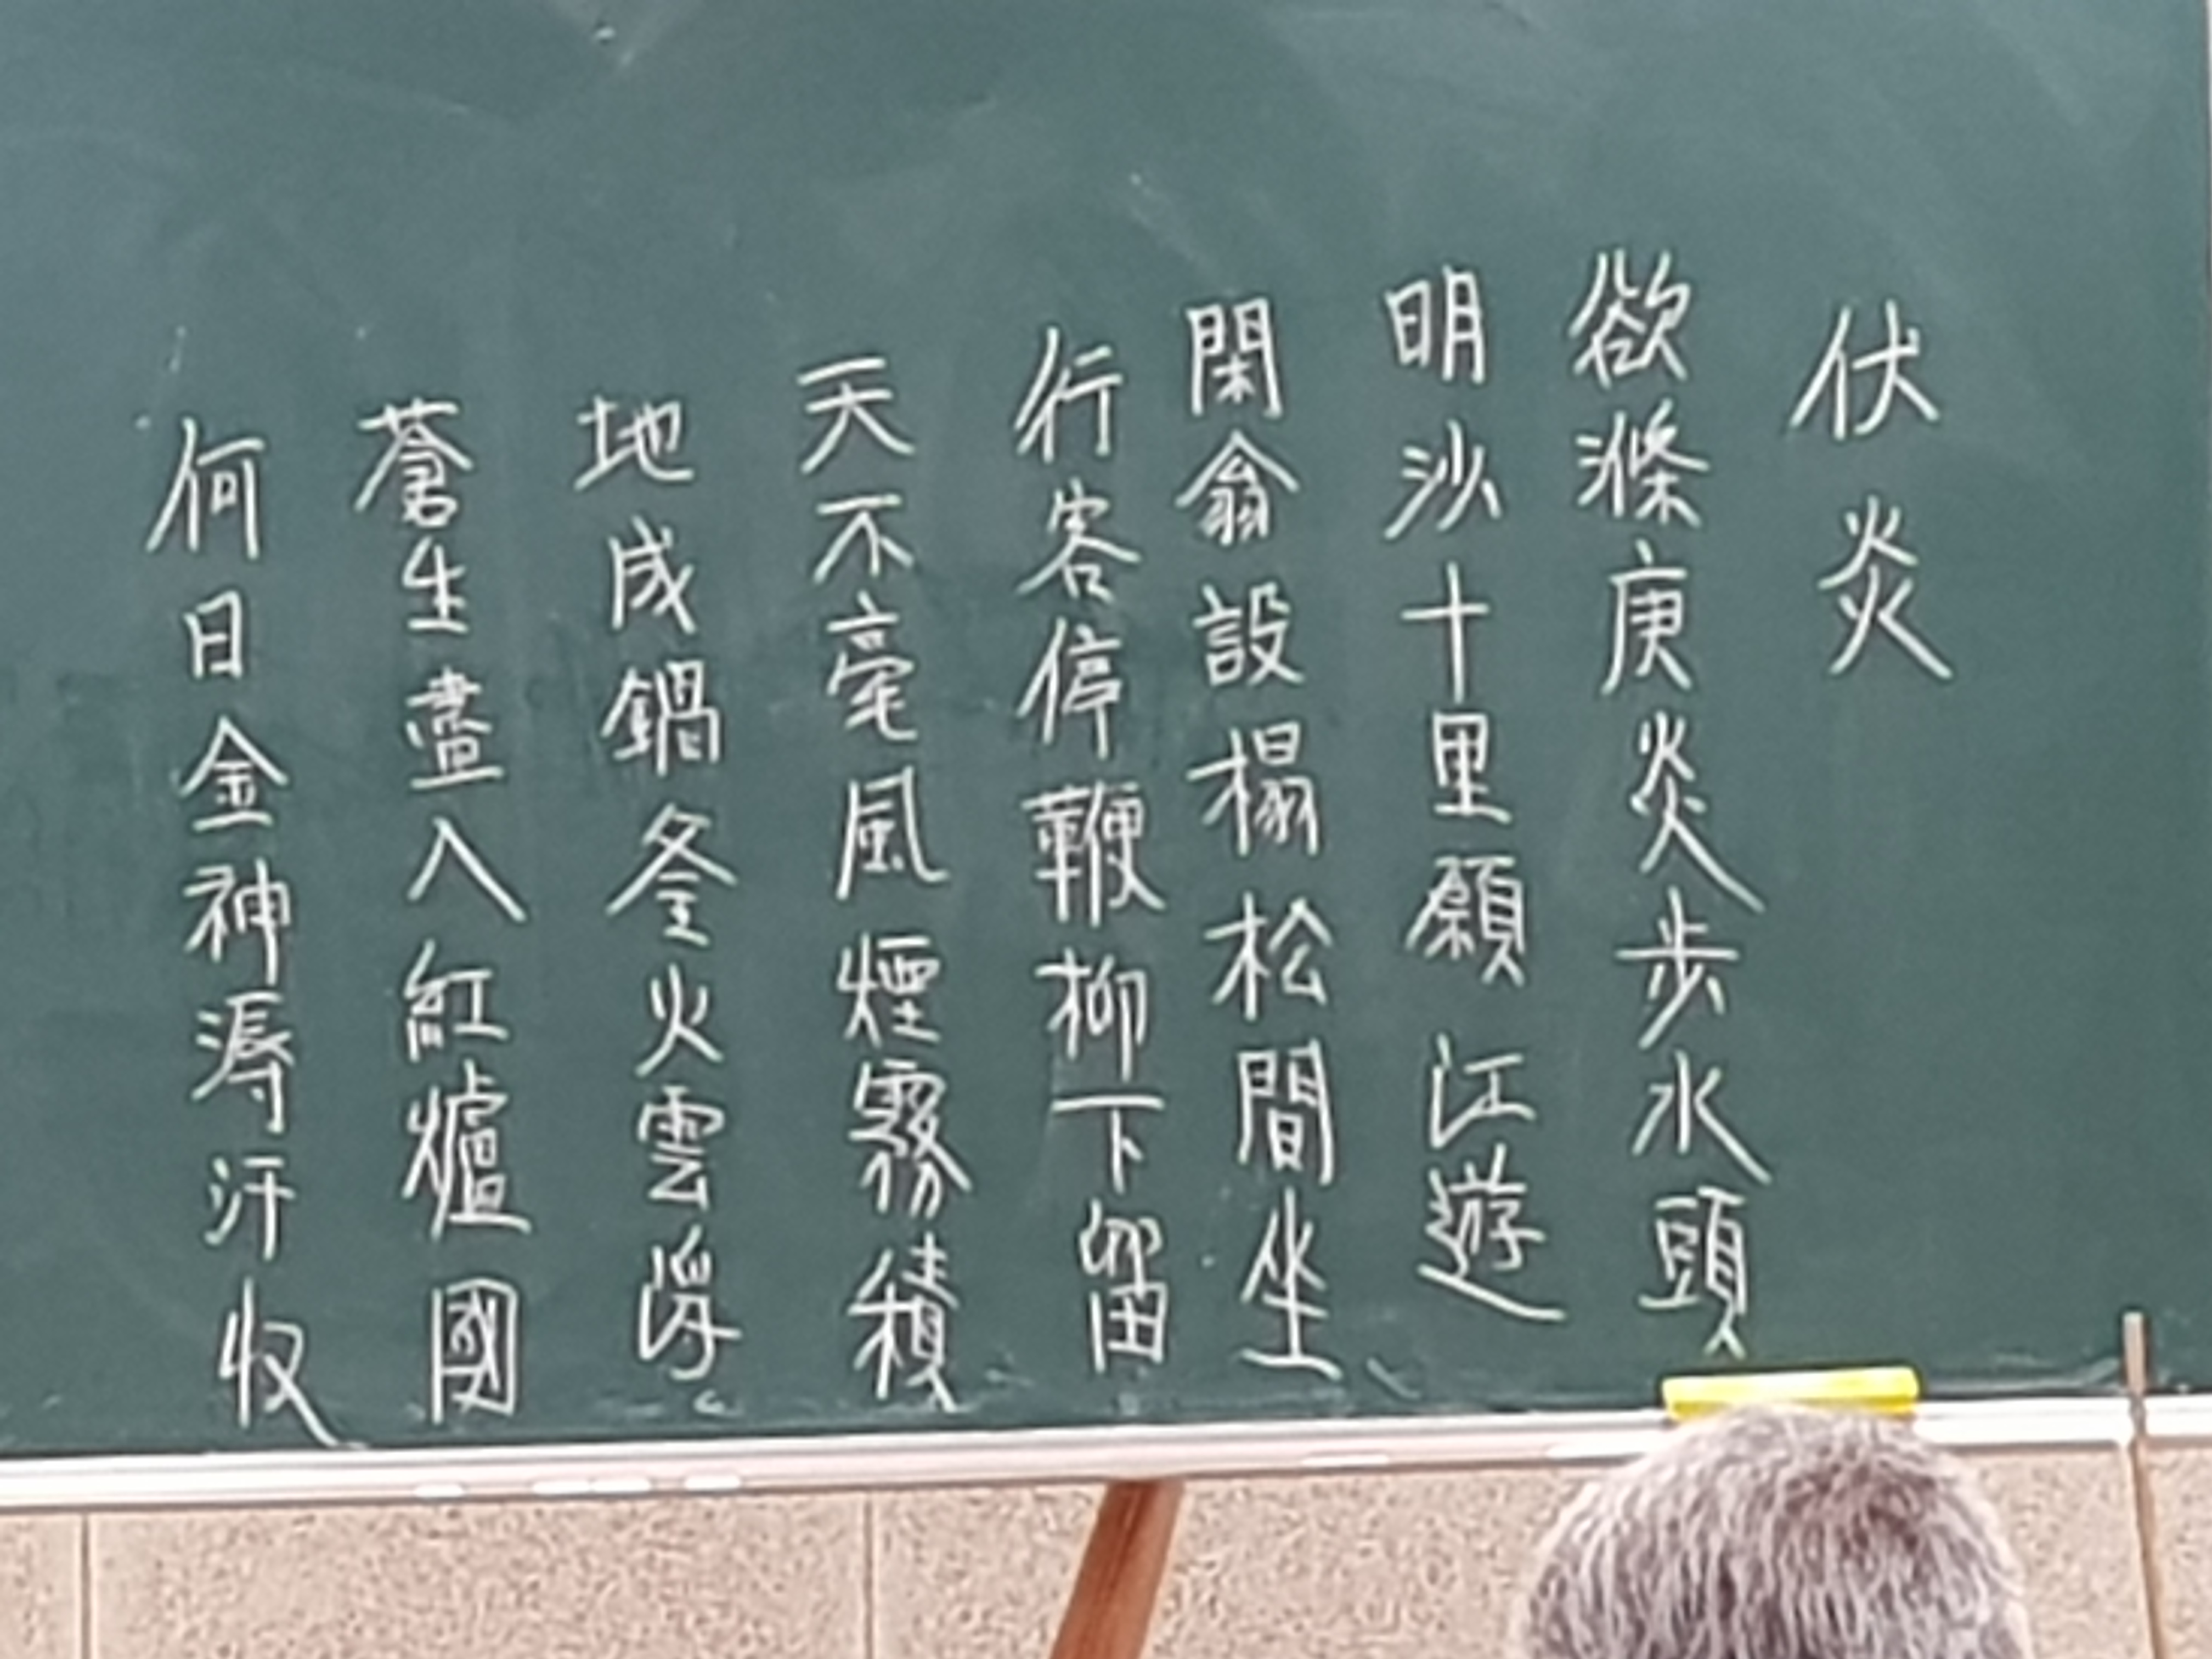 伏炎
欲滌庚炎步水頭
明沙十里願江遊
閑翁設榻松間坐
行客停鞭柳下留
天不毫風煙霧積
地成鍋釜火雲浮
蒼生盡入紅爐國
何日金神溽汗收